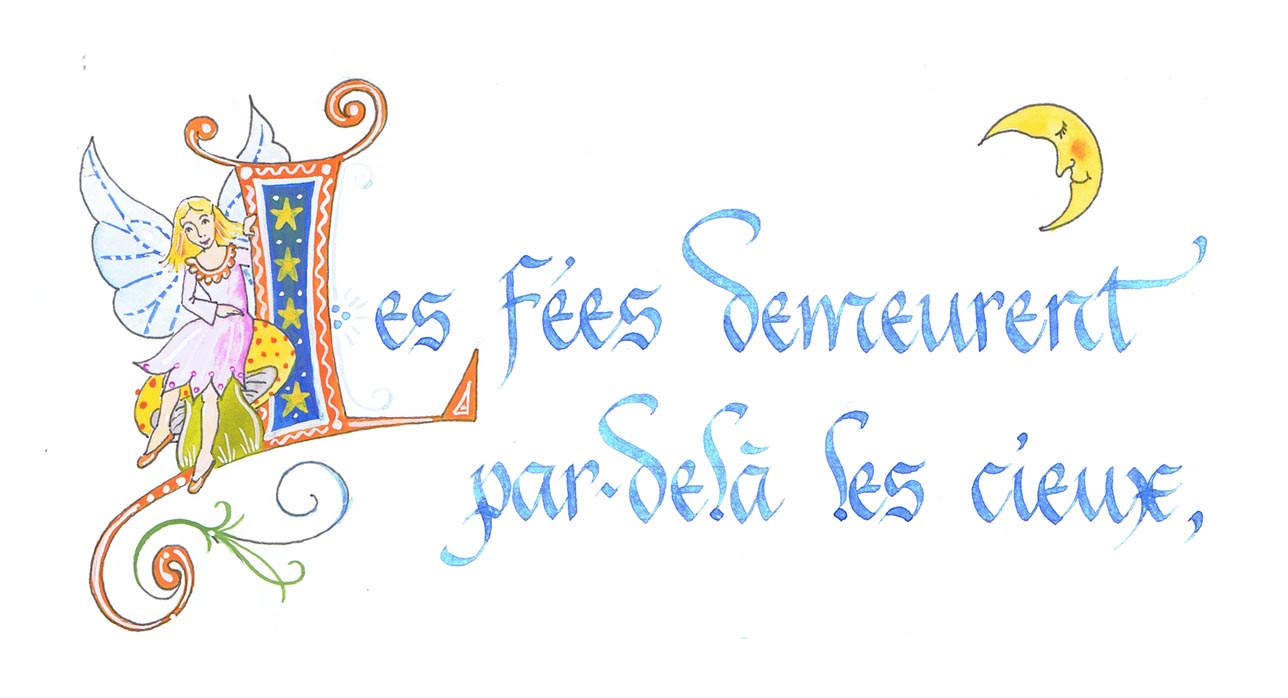 Les fées demeurent
par-delà les cieux,